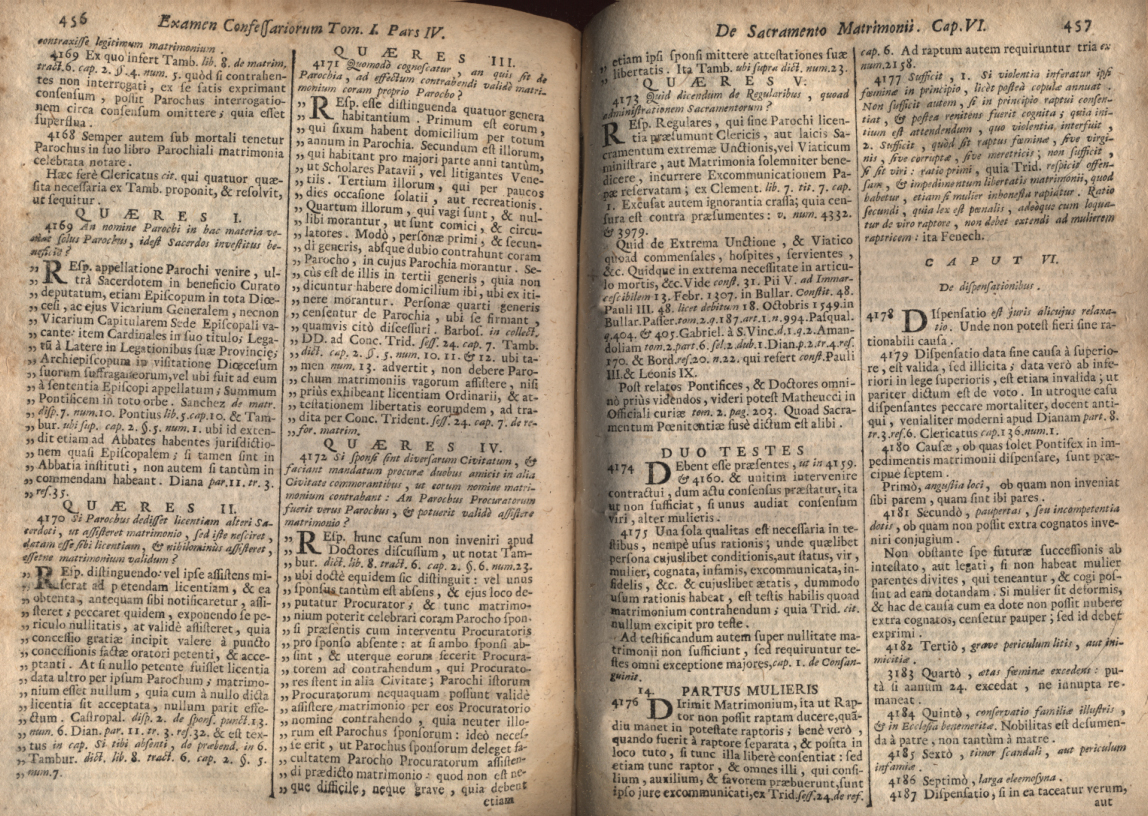 456 Examen Confessariorum Tom. I. Pars IV.
contraxisse legitimum matrimonium.
4169 Ex quo infert Tamb. lib. 8. de matrim.
tract. 6. cap. 2. §. 4. num. 5. quòd si contrahen-
tes non interrogati, ex se satis exprimant
consensum, possit Parochus interrogatio-
nem circa consensum omittere; quia esset
superflua.
4168 Semper autem sub mortali tenetur
Parochus in suo libro Parochiali matrimonia
celebrata notare.
Hæc ferè Clericatus cit. qui quatuor quæ-
sita necessaria ex Tamb. proponit, & resolvit,
ut sequitur.
QUÆRES I.
4169 An nomine Parochi in hac materia ve-
niat solus Parochus, idest Sacerdos investitus be-
neficio?
„ REsp. appellatione Parochi venire, ul-
„ trà Sacerdotem in beneficio Curato
„ deputatum, etiam Episcopum in tota Diœ-
„ cesi, ac ejus Vicarium Generalem, necnon
„ Vicarium Capitularem Sede Episcopali va-
„ cante: item Cardinales in suo titulo; Lega-
„ tũ à Latere in Legationibus suæ Provinciæ;
„ Archiepiscopum in visitatione Diœcesum
„ suorum suffraganeorum, vel ubi fuit ad eum
„ à sententia Episcopi appellatum; Summum
„ Pontificem in toto orbe. Sanchez de matr.
„ disp. 7. num. 10. Pontius lib. 5. cap. 10. & Tam-
„ bur. ubi sup. cap. 2. §. 5. num. 1. ubi id exten-
„ dit etiam ad Abbates habentes jurisdictio-
„ nem quasi Episcopalem; si tamen sint in
„ Abbatia instituti, non autem si tantùm in
„ commendam habeant. Diana par. 11. tr. 3.
„ res. 35.
QUÆRES II.
4170 Si Parochus dedisset licentiam alteri Sa-
cerdoti, ut assisteret matrimonio, sed iste nesciret,
datam esse sibi licentiam, & nihilominùs assisteret,
essetne matrimonium validum?
„ REsp. distinguendo: vel ipse assistens mi-
„ serat ad petendam licentiam, & ea
„ obtenta, antequam sibi notificaretur, assi-
„ steret; peccaret quidem, exponendo se pe-
„ riculo nullitatis, at validè assisteret, quia
„ concessio gratiæ incipit valere à puncto
„ concessionis factæ oratori petenti, & acce-
„ ptanti. At si nullo petente fuisset licentia
„ data ultro per ipsum Parochum; matrimo-
„ nium esset nullum, quia cum à nullo dicta
„ licentia sit acceptata, nullum parit effe-
„ ctum. Castropal. disp. 2. de spons. punct. 13.
„ num. 6. Dian. par. 11. tr. 3. res. 32. & est tex-
„ tus in cap. Si tibi absenti, de præbend. in 6.
„ Tambur. dict. lib. 8. tract. 6. cap. 2. §. 5.
„ num. 7.
QUÆRES III.
4171 Quomodò cognoscatur, an quis sit de
Parochia, ad effectum contrahendi validè matri-
monium coram proprio Parocho?
„ REsp. esse distinguenda quatuor genera
„ habitantium. Primum est eorum,
„ qui fixum habent domicilium per totum
„ annum in Parochia. Secundum est illorum,
„ qui habitant pro majori parte anni tantùm,
„ ut Scholares Patavii, vel litigantes Vene-
„ tiis. Tertium illorum, qui per paucos
„ dies occasione solatii, aut recreationis.
„ Quartum illorum, qui vagi sunt, & nul-
„ libi morantur, ut sunt comici, & circu-
„ latores. Modò, personæ primi, & secun-
„ di generis, absque dubio contrahunt coram
„ Parocho, in cujus Parochia morantur. Se-
„ cùs est de illis in tertii generis, quia non
„ dicuntur habere domicilium ibi, ubi ex iti-
„ nere morantur. Personæ quarti generis
„ censentur de Parochia, ubi se firmant,
„ quamvis citò discessuri. Barbos. in collect.
„ DD. ad Conc. Trid. sess. 24. cap. 7. Tamb.
„ dict. cap. 2. §. 5. num. 10. 11. & 12. ubi ta-
„ men num. 13. advertit, non debere Paro-
„ chum matrimoniis vagorum assistere, nisi
„ priùs exhibeant licentiam Ordinarii, & at-
„ testationem libertatis eorumdem, ad tra-
„ dita per Conc. Trident. sess. 24. cap. 7. de re-
„ for. matrim.
QUÆRES IV.
4172 Si sponsi sint diversarum Civitatum, &
faciant mandatum procuræ duobus amicis in alia
Civitate commorantibus, ut eorum nomine matri-
monium contrahant: An Parochus Procuratorum
fuerit verus Parochus, & potuerit validè assistere
matrimonio?
„ REsp. hunc casum non inveniri apud
„ Doctores discussum, ut notat Tam-
„ bur. dict. lib. 8. tract. 6. cap. 2. §. 6. num. 23.
„ ubi doctè equidem sic distinguit: vel unus
„ sponsus tantùm est absens, & ejus loco de-
„ putatur Procurator; & tunc matrimo-
„ nium poterit celebrari coram Parocho spon-
„ si præsentis cum interventu Procuratoris
„ pro sponso absente: at si ambo sponsi ab-
„ sint, & uterque eorum fecerit Procura-
„ torem ad contrahendum, qui Procurato-
„ res stent in alia Civitate; Parochi istorum
„ Procuratorum nequaquam possunt validè
„ assistere matrimonio per eos Procuratorio
„ nomine contrahendo, quia neuter illo-
„ rum est Parochus sponsorum: ideò neces-
„ se erit, ut Parochus sponsorum deleget fa-
„ cultatem Parocho Procuratorum assisten-
„ di prædicto matrimonio: quod non est ne-
„ que difficile, neque grave, quia debent
etiam
De Sacramento Matrimonii. Cap. VI. 457
„ etiam ipsi sponsi mittere attestationes suæ
„ libertatis. Ita Tamb. ubi supra dict. num. 23.
QUÆRES V.
4173 Quid dicendum de Regularibus, quoad
administrationem Sacramentorum?
REsp. Regulares, qui sine Parochi licen-
tia præsumunt Clericis, aut laicis Sa-
cramentum extremæ Unctionis, vel Viaticum
ministrare, aut Matrimonia solemniter bene-
dicere, incurrere Excommunicationem Pa-
pæ reservatam; ex Clement. lib. 7. tit. 7. cap.
1. Excusat autem ignorantia crassa; quia cen-
sura est contra præsumentes: v. num. 4332.
& 3979.
Quid de Extrema Unctione, & Viatico
quoad commensales, hospites, servientes,
&c. Quidque in extrema necessitate in articu-
lo mortis, &c. Vide const. 31. Pii V. ad Immar-
cescibilem 13. Febr. 1307. in Bullar. Constit. 48.
Pauli III. 48. licet debitum 18. Octobris 1549. in
Bullar. Passer. tom. 2. q. 187. art. 1. n. 994. Pasqual.
q. 404. & 405. Gabriel. à S. Vinc. d. 1. q. 2. Aman-
doliam tom. 2. part. 6. sol. 2. dub. 1. Dian. p. 2. tr. 4. res.
170. & Bord. res. 20. n. 22. qui refert const. Pauli
III. & Leonis IX.
Post relatos Pontifices, & Doctores omni-
nò priùs videndos, videri potest Matheucci in
Officiali curiæ tom. 2. pag. 203. Quoad Sacra-
mentum Pœnitentiæ fusè dictum est alibi.
DUO TESTES
4174 DEbent esse præsentes, ut in 4159.
& 4160. & unitim intervenire
contractui, dum actu consensus præstatur, ita
ut non sufficiat, si unus audiat consensum
viri, alter mulieris.
4175 Una sola qualitas est necessaria in te-
stibus, nempè usus rationis; unde quælibet
persona cujuslibet conditionis, aut status, vir,
mulier, cognata, infamis, excommunicata, in-
fidelis, &c. & cujuslibet ætatis, dummodo
usum rationis habeat, est testis habilis quoad
matrimonium contrahendum; quia Trid. cit.
nullum excipit pro teste.
Ad testificandum autem super nullitate ma-
trimonii non sufficiunt, sed requiruntur te-
stes omni exceptione majores, cap. 1. de Consan-
guinit.
14.
PARTUS MULIERIS
4176 DIrimit Matrimonium, ita ut Rap-
tor non possit raptam ducere, quã-
diu manet in potestate raptoris; benè verò,
quando fuerit à raptore separata, & posita in
loco tuto, si tunc illa liberè consentiat: sed
etiam tunc raptor, & omnes illi, qui consi-
lium, auxilium, & favorem præbuerunt, sunt
ipso jure excommunicati, ex Trid. sess. 24. de ref.
cap. 6. Ad raptum autem requiruntur tria ex
num. 2158.
4177 Sufficit, 1. Si violentia inferatur ipsi
fœminæ in principio, licèt posteà copulæ annuat.
Non sufficit autem, si in principio raptui consen-
tiat, & posteà renitens fuerit cognita; quia ini-
tium est attendendum, quo violentia interfuit,
2. Sufficit, quòd sit raptus fœminæ, sive virgi-
nis, sive corruptæ, sive meretricis; non sufficit,
si sit viri: ratio primi, quia Trid. respicit offen-
sam, & impedimentum libertatis matrimonii, quod
habetur, etiam si mulier inhonesta rapiatur. Ratio
secundi, quia lex est pœnalis, adeòque cum loqua-
tur de viro raptore, non debet extendi ad mulierem
raptricem: ita Fenech.
CAPUT VI.
De dispensationibus.
4178 DIspensatio est juris alicujus relaxa-
tio. Unde non potest fieri sine ra-
tionabili causa.
4179 Dispensatio data sine causa à superio-
re, est valida, sed illicita; data verò ab infe-
riori in lege superioris, est etiam invalida; ut
pariter dictum est de voto. In utroque casu
dispensantes peccare mortaliter, docent anti-
qui, venialiter moderni apud Dianam part. 8.
tr. 3. res. 6. Clericatus cap. 136. num. 1.
4180 Causæ, ob quas solet Pontifex in im-
pedimentis matrimonii dispensare, sunt præ-
cipuè septem.
Primò, angustia loci, ob quam non inveniat
sibi parem, quam sint ibi pares.
4181 Secundò, paupertas, seu incompetentia
dotis, ob quam non possit extra cognatos inve-
niri conjugium.
Non obstante spe futuræ successionis ab
intestato, aut legati, si non habeat mulier
parentes divites, qui teneantur, & cogi pos-
sint ad eam dotandam. Si mulier sit deformis,
& hac de causa cum ea dote non possit nubere
extra cognatos, censetur pauper; sed id debet
exprimi.
4182 Tertiò, grave periculum litis, aut ini-
micitiæ.
3183 Quartò, ætas fœminæ excedens: pu-
tà si annum 24. excedat, & innupta re-
maneat.
4184 Quintò, conservatio familiæ illustris,
& in Ecclesia benemeritæ. Nobilitas est desumen-
da à patre, non tantùm à matre.
4185 Sextò, timor scandali, aut periculum
infamiæ.
4186 Septimò, larga eleemosyna.
4187 Dispensatio, si in ea taceatur verum,
aut